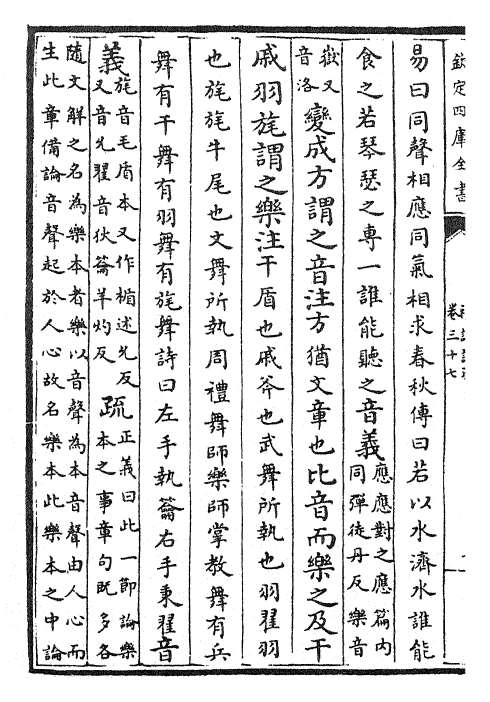 欽定四庫全書
卷三十七
易曰同聲相應同氣相求春秋傳曰若以水濟水誰能
食之若琴瑟之專一誰能聽之音義應應對之應篇内
同彈徒丹反樂音
嶽又
音洛變成方謂之音注方猶文章也比音而樂之及干
戚羽旄謂之樂注干盾也戚斧也武舞所執也羽翟羽
也旄旄牛尾也文舞所執周禮舞師樂師掌教舞有兵
舞有干舞有羽舞有旄舞詩曰左手執籥右手秉翟音
義旄音毛盾本又作楯述允反
又音允翟音狄籥羊灼反疏正義曰此一節論樂
本之事章句既多各
隨文解之名為樂本者樂以音聲為本音聲由人心而
生此章備論音聲起於人心故名樂本此樂本之中論